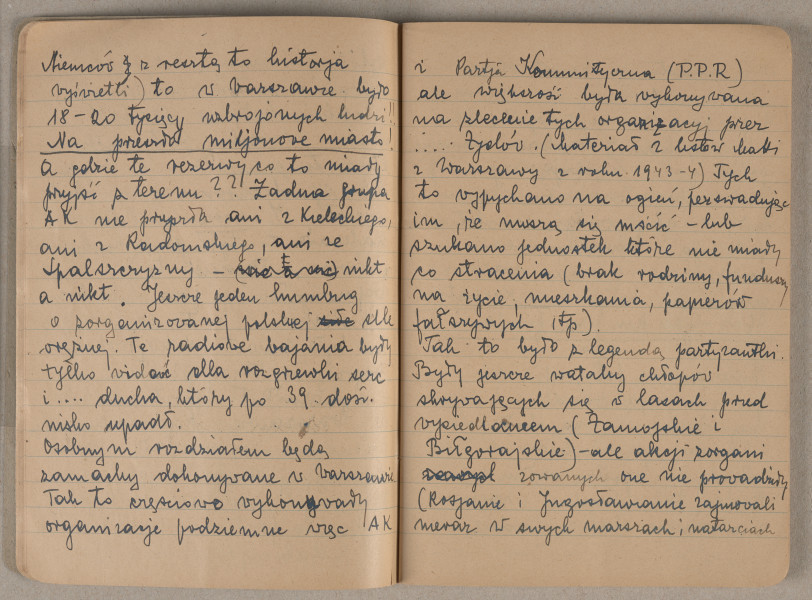 Niemców z resztą to historja
wyświetli) to w Warszawie było
18-20 tysięcy uzbrojonych ludzi!!
Na przeszło miljonowe miasto!
A gdzie te rezerwy co to miały
przyjść z terenu?? Żadna grupa
AK nie przyszła ani z Kieleckiego,
ani z Radomskiego, ani ze
Spalszczyzny – nikt
a nikt. Jeszcze jeden humbug
o zorganizowanej polskiej sile
orężnej. Te radiowe bajania były
tylko widać dla rozgrzewki serc
i .... ducha, który po 39. dość.
nisko upadł.
Osobnym rozdziałem będą
zamachy dokonywane w Warszawie
Tak to częściowo wykonywały
organizacje podziemne więc AK
i Partja Kommunityczna (P.P.R)
ale większość była wykonywana
na zlecenie tych organizacyj przez
..... Żydów. (Materiał z listów Matki
z Warszawy z roku 1943-4) Tych
to wypychano na ogień, perswadując
im, że muszą się mścić – lub
szukano jednostek które nie miały
co stracenia (brak rodziny, funduszy
na życie, mieszkania, papierów
fałszywych itp).
Tak to było z legendą partyzantki.
Były jeszcze watahy chłopów
skrywających się w lasach przed
wysiedleniem (Zamojskie i
Biłgorajskie) – ale akcji zorgani
zowanych one nie prowadziły
(Rosjanie i Jugosławianie zajmowali
nieraz w swych marszach i natarciach